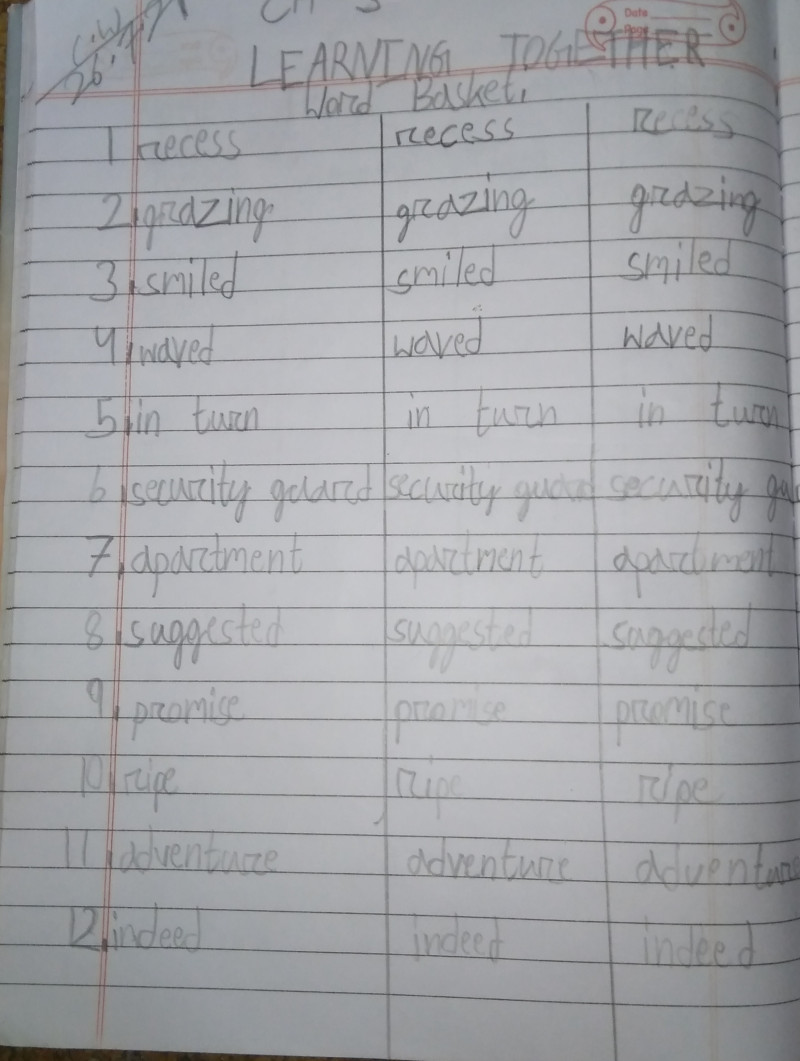 C.W
LEARNING TOGETHER
Date
Page
Word Basket
1 recess recess recess
2 grazing grazing grazing
3 smiled smiled smiled
4 waved waved waved
5 in turn in turn in turn
6 security guard security guard security gu
7 apartment apartment apartment
8 suggested suggested suggested
9 promise promise promise
10 ripe ripe ripe
11 adventure adventure adventure
12 indeed indeed indeed